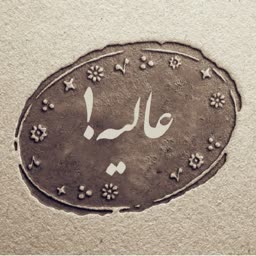 عالیه!